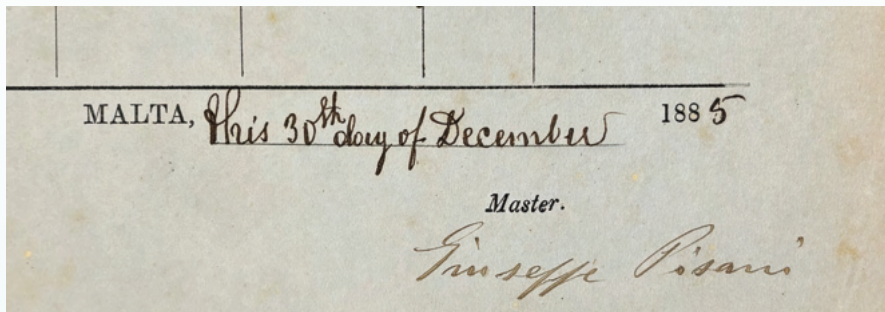 MALTA, this 30th day of December 1885
Master.
Giuseppe Pisani